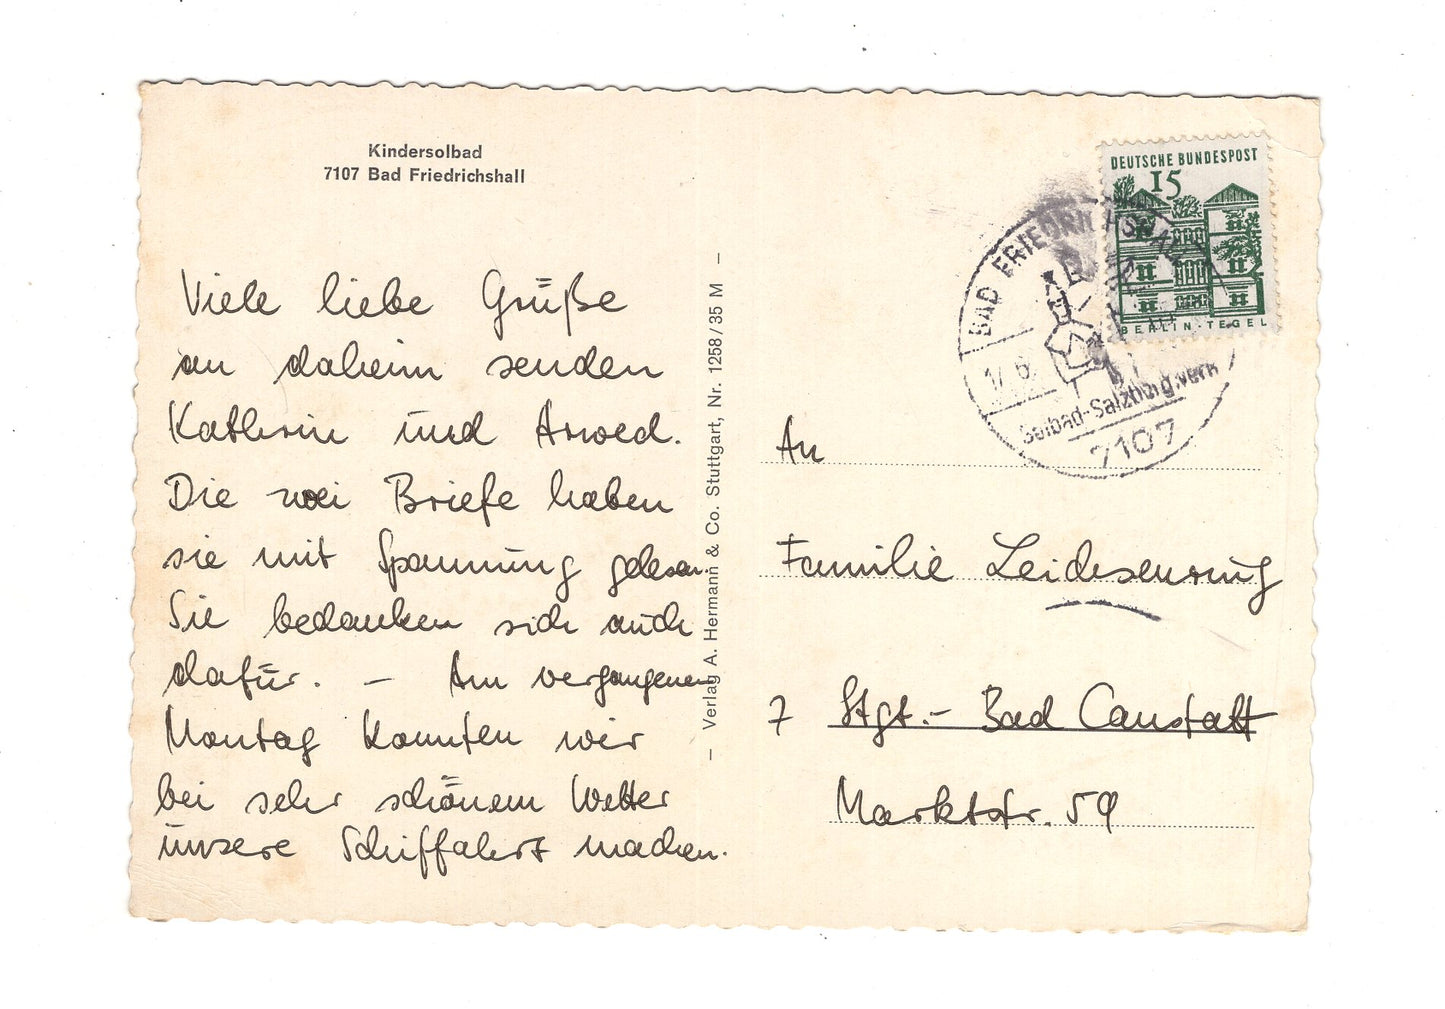 Kindersolbad
7107 Bad Friedrichshall
Viele liebe Grüße
an daheim senden
Kathrin und Arwed.
Die zwei Briefe haben
sie mit Spannung gelesen.
Sie bedanken sich auch
dafür. – Am vergangenen
Montag konnten wir
bei sehr schönem Wetter
unsere Schiffahrt machen.
– Verlag A. Hermann & Co. Stuttgart, Nr. 1258/35 M –
DEUTSCHE BUNDESPOST
15
BERLIN-TEGEL
BAD FRIEDRICHSHALL
Solbad-Salzbergwerk
7107
An
Familie
7 Stgt.- Bad Canstatt
Marktstr. 59